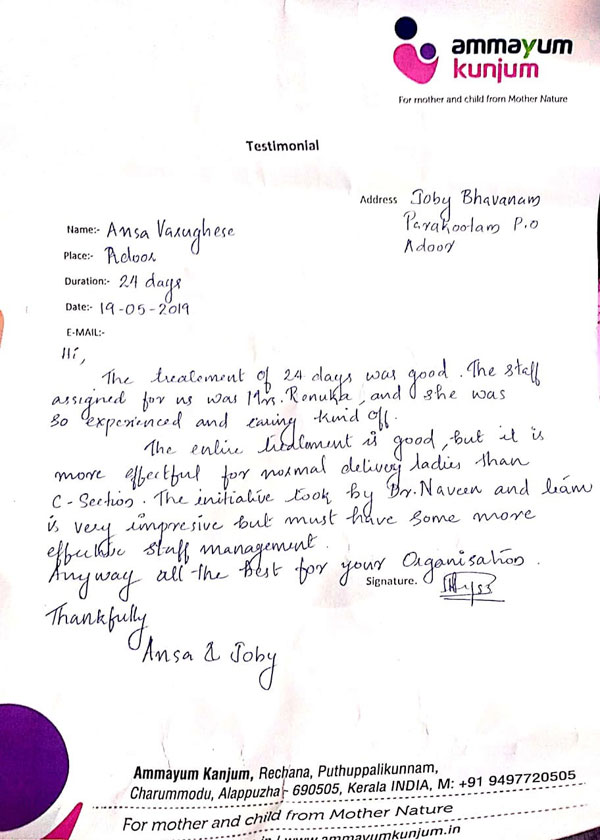 ammayum
kunjum
For mother and child from Mother Nature
Testimonial
Address Joby Bhavanam
Parakootam P.O
Adoor
Name:- Ansa Varughese
Place:- Adoor
Duration:- 24 days
Date:- 19-05-2019
E-MAIL:-
Hi,
The treatement of 24 days was good. The staff
assigned for us was Mrs. Renuka, and she was
so experienced and caring kind off.
The entire treatment is good, but it is
more effectful for normal delivery ladies than
C-Section. The initiative took by Dr. Naveen and team
is very impresive but must have some more
effective staff management.
Anyway all the best for your Organisation.
Signature.
Thankfully
Ansa & Joby
Ammayum Kanjum, Rechana, Puthuppalikunnam,
Charummodu, Alappuzha - 690505, Kerala INDIA, M: +91 9497720505
For mother and child from Mother Nature
www.ammayumkunjum.in